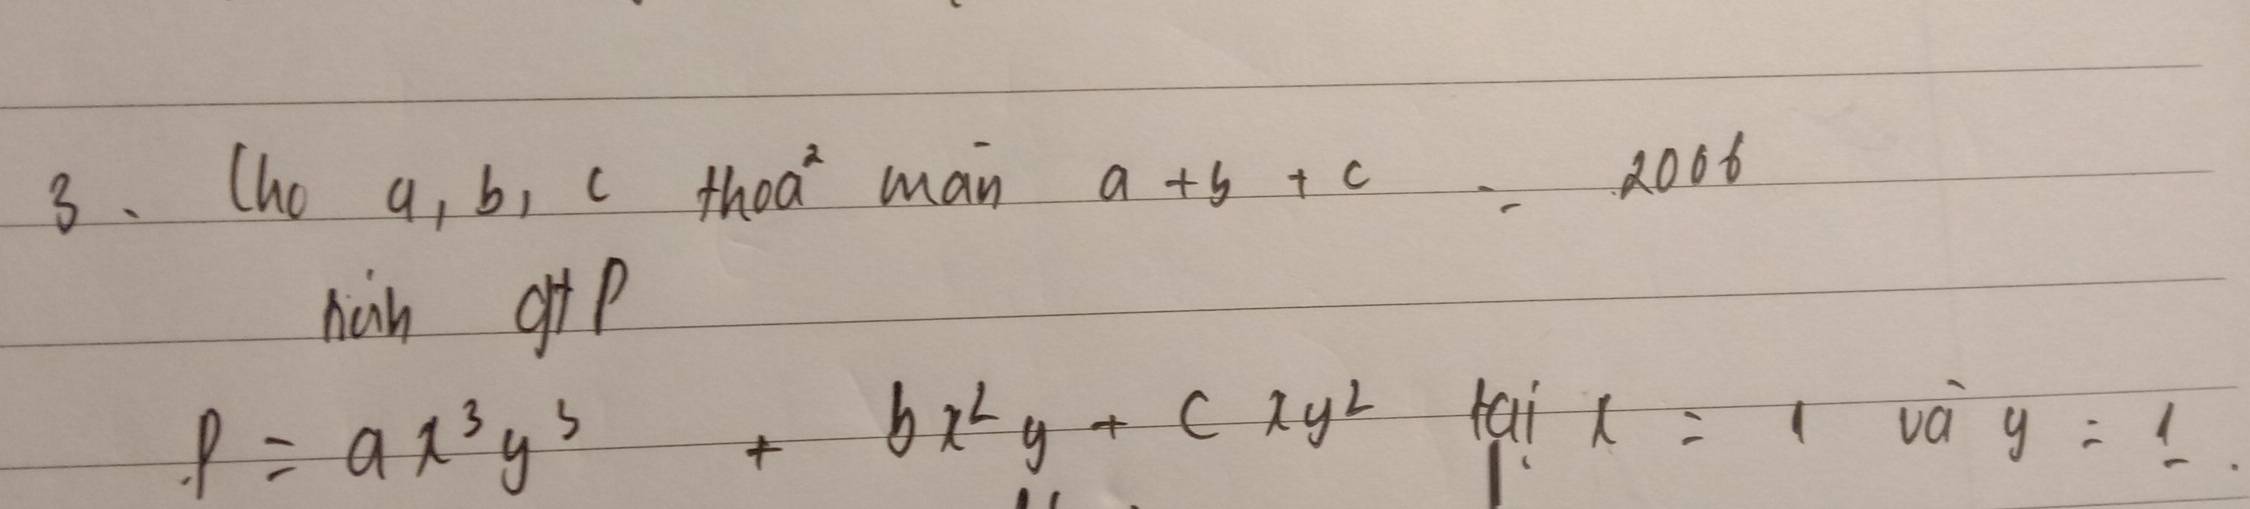 3. Cho a, b, c thoả mãn a + b + c = 2006
gt P
P = ax³y³ + bx²y + cxy² tại x = 1 và y = 1.